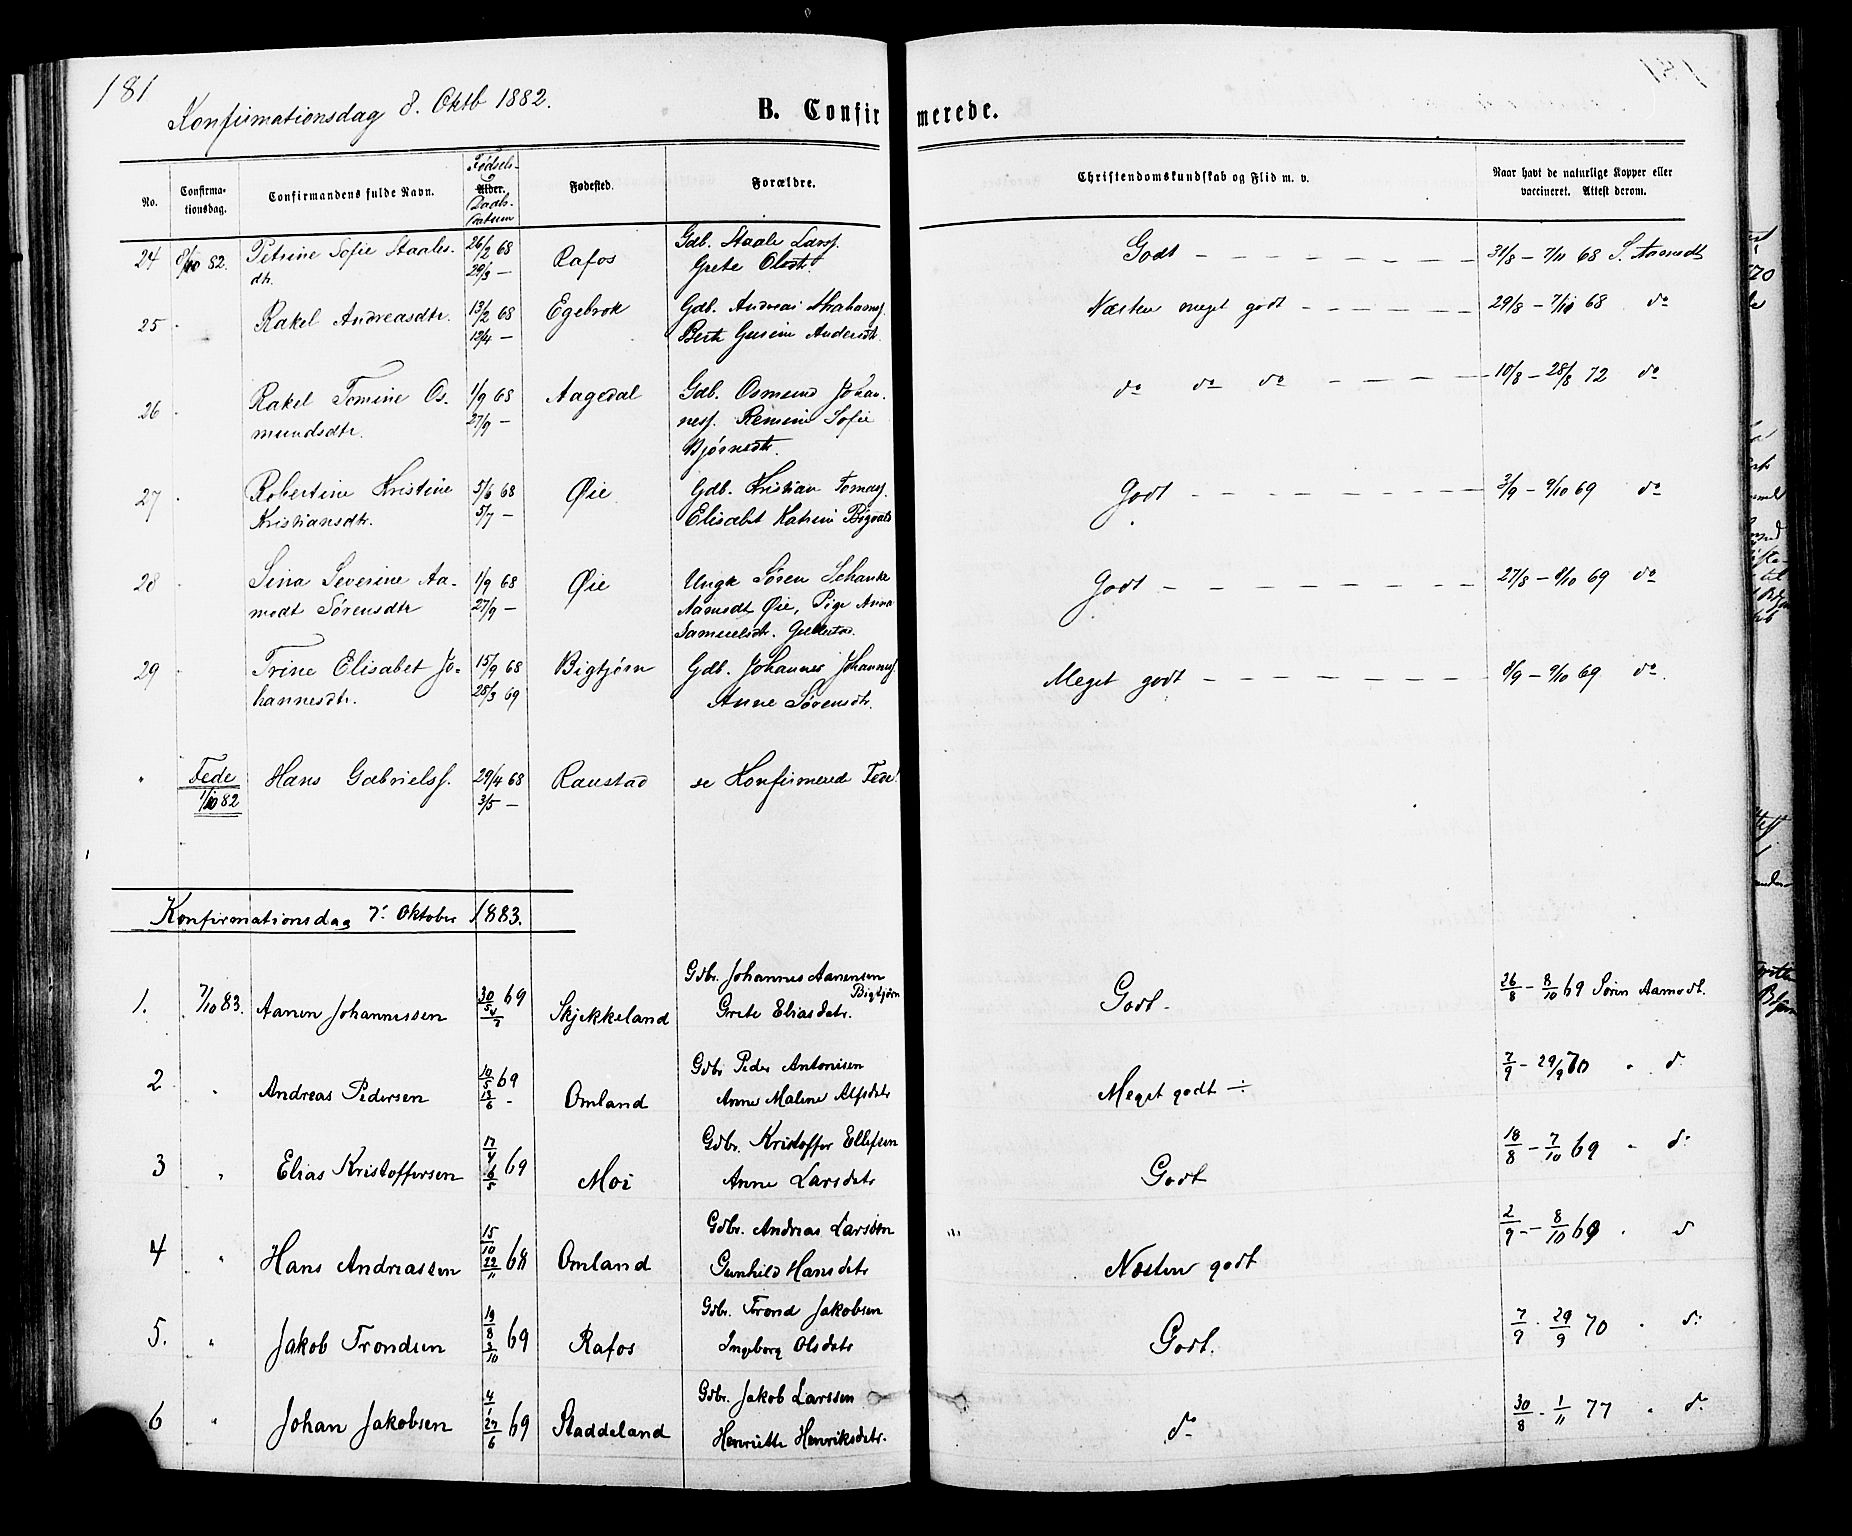 181
Konfirmationsdag 8. Oktb 1882.
B. Confirmerede.
No.
Confirma-
tionsdag.
Confirmandens fulde Navn.
Fødsels-
Alder.
Daabs-
datum
Fødested.
Forældre.
Christendomskundskab og Flid m. v.
Naar havt de naturlige Kopper eller
vaccineret. Attest derom.
24 8/10 82. Petrine Sofie Staales- 26/2 68 Rafos Gdb. Staale Larsf. Godt 31/8 – 7/11 68 S. Aamodt
dtr. 29/3 — Grete Olsdtr.
25 Rakel Andreasdtr. 13/2 68 Egebrok Gdb. Andreas Abrahamsf. Næsten meget godt 29/8 – 7/10 68 do
13/4 — Berte Gurine Andersdtr.
26 Rakel Tomine Os- 1/9 68 Aagedal Gdb. Osmund Johan- do do do 10/8 – 28/8 72 do
mundsdtr. 27/9 — nesf. Remine Sofie
Bjørnedtr.
27 Robertine Kristine 5/6 68 Øie Gdb. Kristian Tomasf. Godt 3/9 – 9/10 69 do
Kristiansdtr. 5/7 — Elisabet Katrine
28 Sina Severine Aa- 1/9 68 Øie Ungk Søren Schanke Godt 27/8 – 8/10 69 do
modt Sørensdtr 27/9 — Aamodt Øie, Pige Anna
Samuelsdtr.
29 Trine Elisabet Jo- 15/9 68 Bigtjørn Gdb. Johannes Johannesf. Meget godt 8/9 – 9/10 69 do
hannesdtr. 28/3 69 Anne Sørensdtr.
" Fede Hans Gabrielsf. 29/4 68 Raustad se Konfirmerede Fede!
1/10 82 3/5 —
Konfirmationsdag 7. Oktober 1883.
1. 7/10 83. Aanen Johannessen 30/5 69 Skjekkeland Gdbr. Johannes Aanensen Bigtjørn Godt. 26/8 – 8/10 69 Søren Aamodt.
4/7 Grete Eliasdatr.
2 " Andreas Pedersen 10/5 69 Omland Gdbr Peder Antonisen Meget godt ÷ 7/9 – 29/9 70 " do
13/6 - Anne Malene Alfsdatr
3 " Elias Kristoffersen 17/4 69 Moi Gdbr. Kristoffer Ellefsen Godt 18/8 – 7/10 69 " do
6/5 Anne Larsdatr
4 " Hans Andreassen 15/10 68 Omland Gdbr. Andreas Larssen Næsten godt 2/9 – 8/10 69 " do
22/11 Gunhild Hansdatr
5. " Jakob Trondsen 19/8 69 Rafos Gdbr. Trond Jakobsen Godt. 7/9 - 29/9 70 " do
3/10 Ingeborg Olsdatr
6 " Johan Jakobsen 4/1 69 Staddeland Gdbr. Jakob Larssen do 30/8 - 1/11 77 " do
27/6 Henriette Henriksdatr.